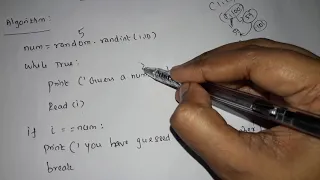 Algorithm:
5
num = random.randint(1,10)
While True:
print ('Guess a num
Read (i)
if i == num:
print (' you have guessed
break